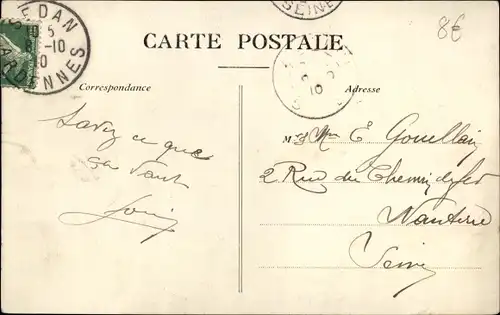 SEDAN
10 5
-10
10
ARDENNES
SEINE
8€
CARTE POSTALE
10
Correspondance
Adresse
Savez ce que
ça vaut
M Mme E Gouellain
2 Rue du Chemin de fer
Nanterre
Seine